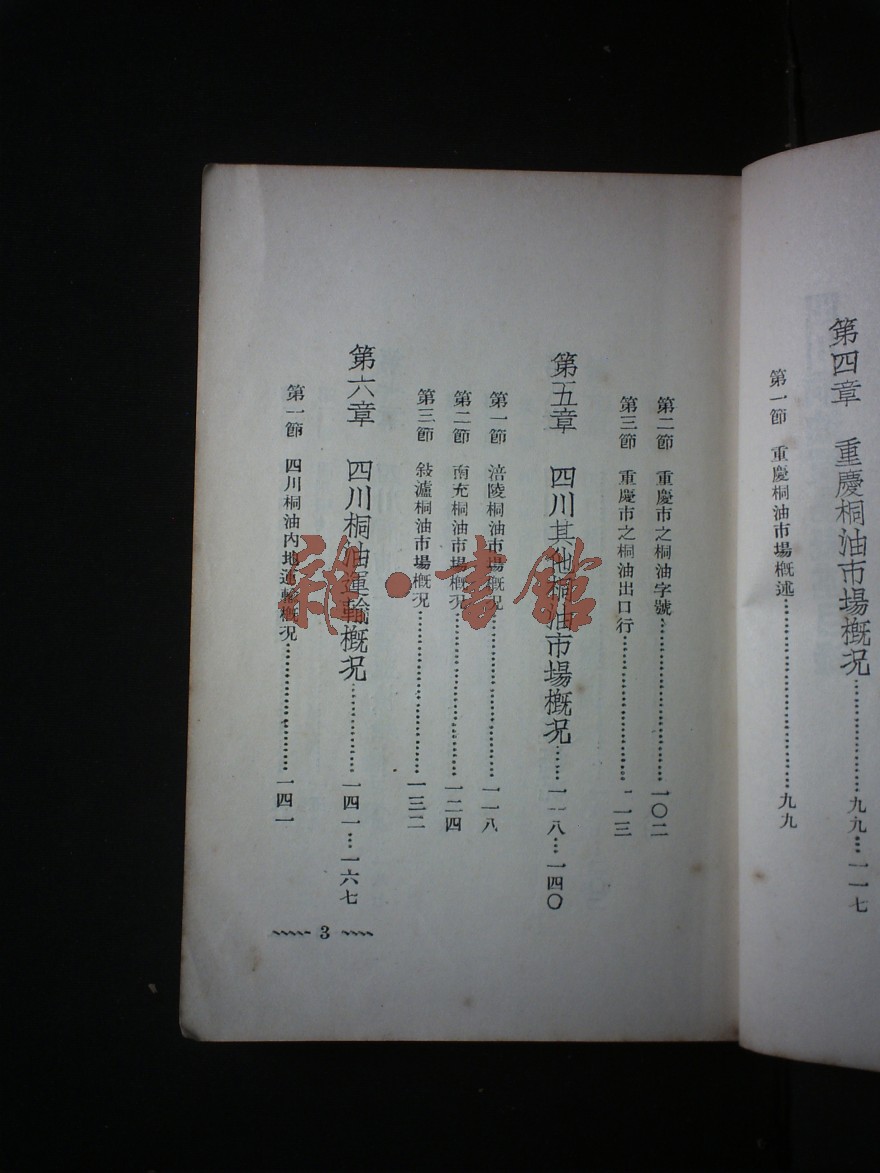 第四章 重慶桐油市場概况……………九九…一一七
第一節 重慶桐油市場概述……………………九九
第二節 重慶市之桐油字號……………………一〇二
第三節 重慶市之桐油出口行…………………二一三
第五章 四川其他桐油市場概况……一一八…一四〇
第一節 涪陵桐油市場概况……………………一一八
第二節 南充桐油市場概况……………………一二四
第三節 敍瀘桐油市場概况……………………一三二
第六章 四川桐油運輸概况……………一四一…一六七
第一節 四川桐油內地運輸概况………………一四一
3
書館